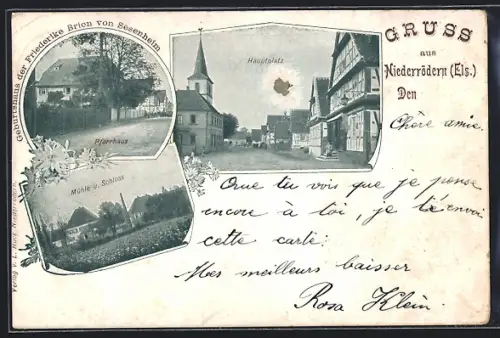 Geburtshaus der Friederike Brion von Sesenheim
Pfarrhaus
Hauptplatz
Mühle u. Schloss
GRUSS
aus
Niederrödern (Els.)
Den
Chère amie.
Que tu vois que je pense
encore à toi, je t'envoi
cette carte.
Mes meilleurs baisser
Rosa Klein.
Verlag v. L.